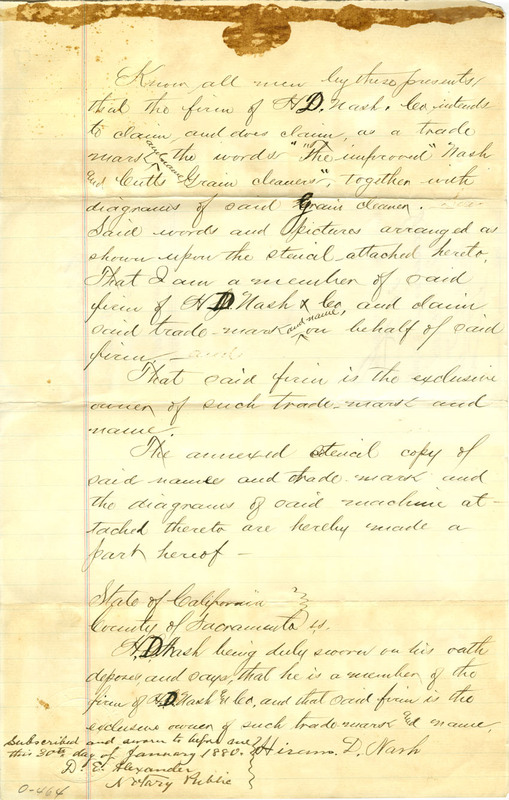 Know all men by these presents
that the firm of H D. Nash & Co, intends
to claim and does claim, as a trade
mark and name the words "The improved" Nash
and Cutts Grain cleaners", together with
diagrams of said Grain cleaner.
Said words and pictures arranged as
shown upon the stencil attached hereto.
That I am a member of said
firm of H D Nash & Co, and claim
said trade-mark and name, on behalf of said
firm,
That said firm is the exclusive
owner of such trade-mark and
name.
The annexed stencil copy of
said names and trade-mark and
the diagrams of said machine at-
tached thereto are hereby made a
part hereof-
State of California
County of Sacramento ss.
H. D. Nash being duly sworn on his oath
deposes and says, that he is a member of the
firm of H D Nash & Co, and that said firm is the
exclusive owner of such trade-mark & name.
Subscribed and sworn to before me
this 30th day of January 1880.
Hiram D. Nash
D. E. Alexander
Notary Public
0-464